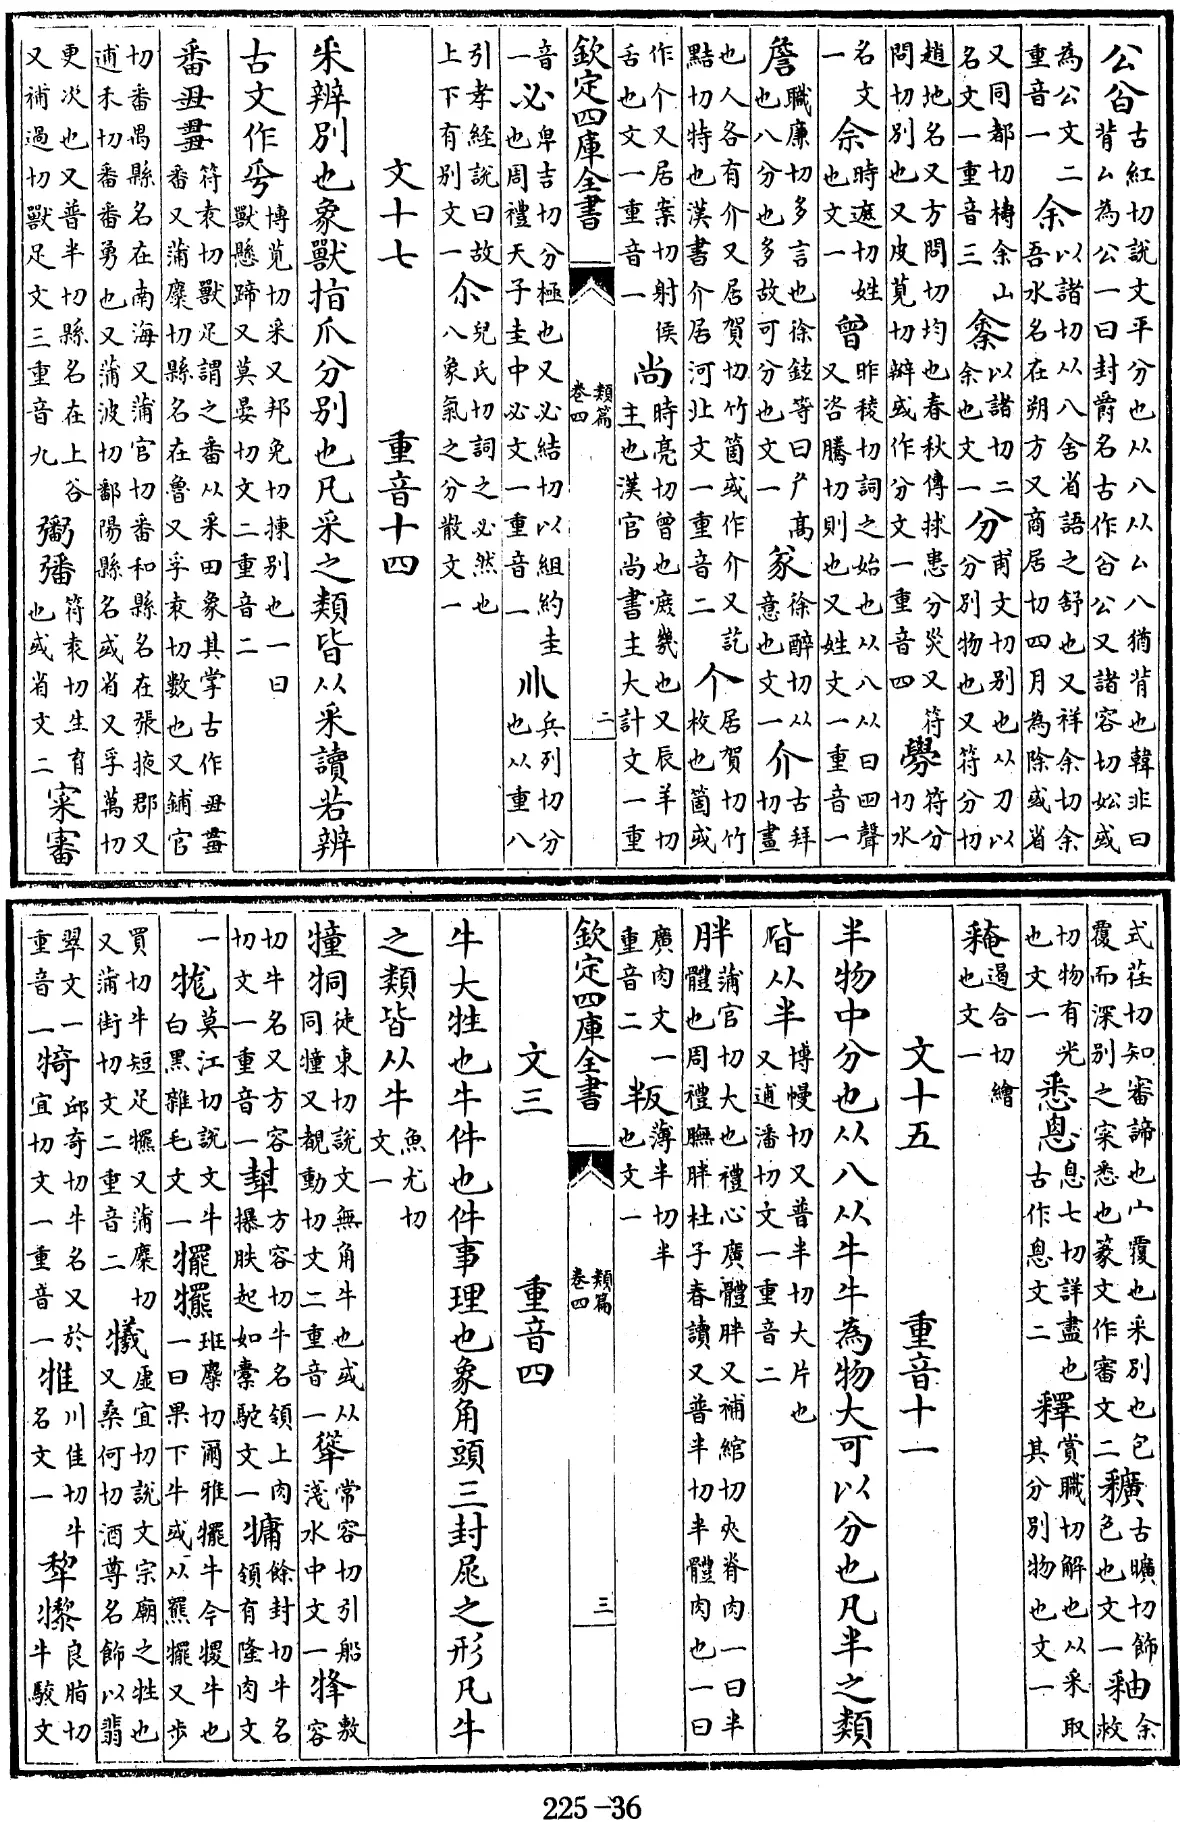 公㕣古紅切說文平分也从八从厶八猶背也韓非曰背厶為公一曰封爵名古作㕣公又諸容切妐或
為公文二重音一余以諸切从八舍省語之舒也又祥余切余吾水名在朔方又商居切四月為除或省
又同都切梼余山名文一重音三以諸切二余也文一分甫文切別也从刀以分分別物也又符分切
趙地名又方問切均也春秋傳捄患分災又符問切別也又皮莧切辦或作分文一重音四符分切水
名文一佘時遮切姓也文一曾昨稜切詞之始也从八从曰四聲又咨騰切則也又姓文一重音一
詹職廉切多言也徐鉉等曰厃高也八分也多故可分也文一㒸徐醉切从意也文一介古拜切畫
也人各有介又居賀切竹箇或作介又訖黠切特也漢書介居河北文一重音二个居賀切竹枚也箇或
作个又居案切射侯舌也文一重音一尚時亮切曾也庶幾也又辰羊切主也漢官尚書主大計文一重
欽定四庫全書 類篇 卷四 二
音一必卑吉切分極也又必結切以組約圭也周禮天子圭中必文一重音一𠔁兵列切分也从重八
引孝經說曰故上下有別文一尒兒氏切詞之必然也八象氣之分散文一
文十七 重音十四
釆辨別也象獸指爪分別也凡釆之類皆从釆讀若辨
古文作博莧切釆又邦免切揀別也一曰獸懸蹄又莫晏切文二重音二
番符袁切獸足謂之番从釆田象其掌古作番又蒲糜切縣名在魯又孚袁切數也又鋪官
切番禺縣名在南海又蒲官切番和縣名在張掖郡又逋禾切番番勇也又蒲波切鄱陽縣名或省又孚萬切
更次也又普半切縣名在上谷又補過切獸足文三重音九符袁切生育也或省文二宷審
式荏切知審諦也宀覆也釆別也包覆而深別之宷悉也篆文作審文二古曠切飾色也文一釉余救
切物有光也文一悉恖息七切詳盡也古作恖文二釋賞職切解也从釆取其分別物也文一
遏合切繪也文一
文十五 重音十一
半物中分也从八从牛牛為物大可以分也凡半之類
皆从半博幔切又普半切大片也又逋潘切文一重音二
胖蒲官切大也禮心廣體胖又補綰切夾脊肉一曰半體也周禮膴胖杜子春讀又普半切半體肉也一曰
廣肉文一重音二叛薄半切半也文一
欽定四庫全書 類篇 卷四 三
文三 重音四
牛大牲也牛件也件事理也象角頭三封尾之形凡牛
之類皆从牛魚尤切文一
犝徒東切說文無角牛也或从同犝又覩動切文二重音一常容切引船淺水中文一敷容
切牛名又方容切文一重音一犎方容切牛名領上肉㩧胅起如橐駝文一餘封切牛名領有隆肉文
一牻莫江切說文牛白黑雜毛文一犤班糜切爾雅犤牛今㹘牛也一曰果下牛或从羆犤又步
買切牛短足犤又蒲糜切又蒲街切文二重音二犧虛宜切說文宗廟之牲也又桑何切酒尊名飾以翡
翠文一重音一犄邱奇切牛名又於宜切文一重音一川隹切牛名文一犂良脂切牛駁文
225-36